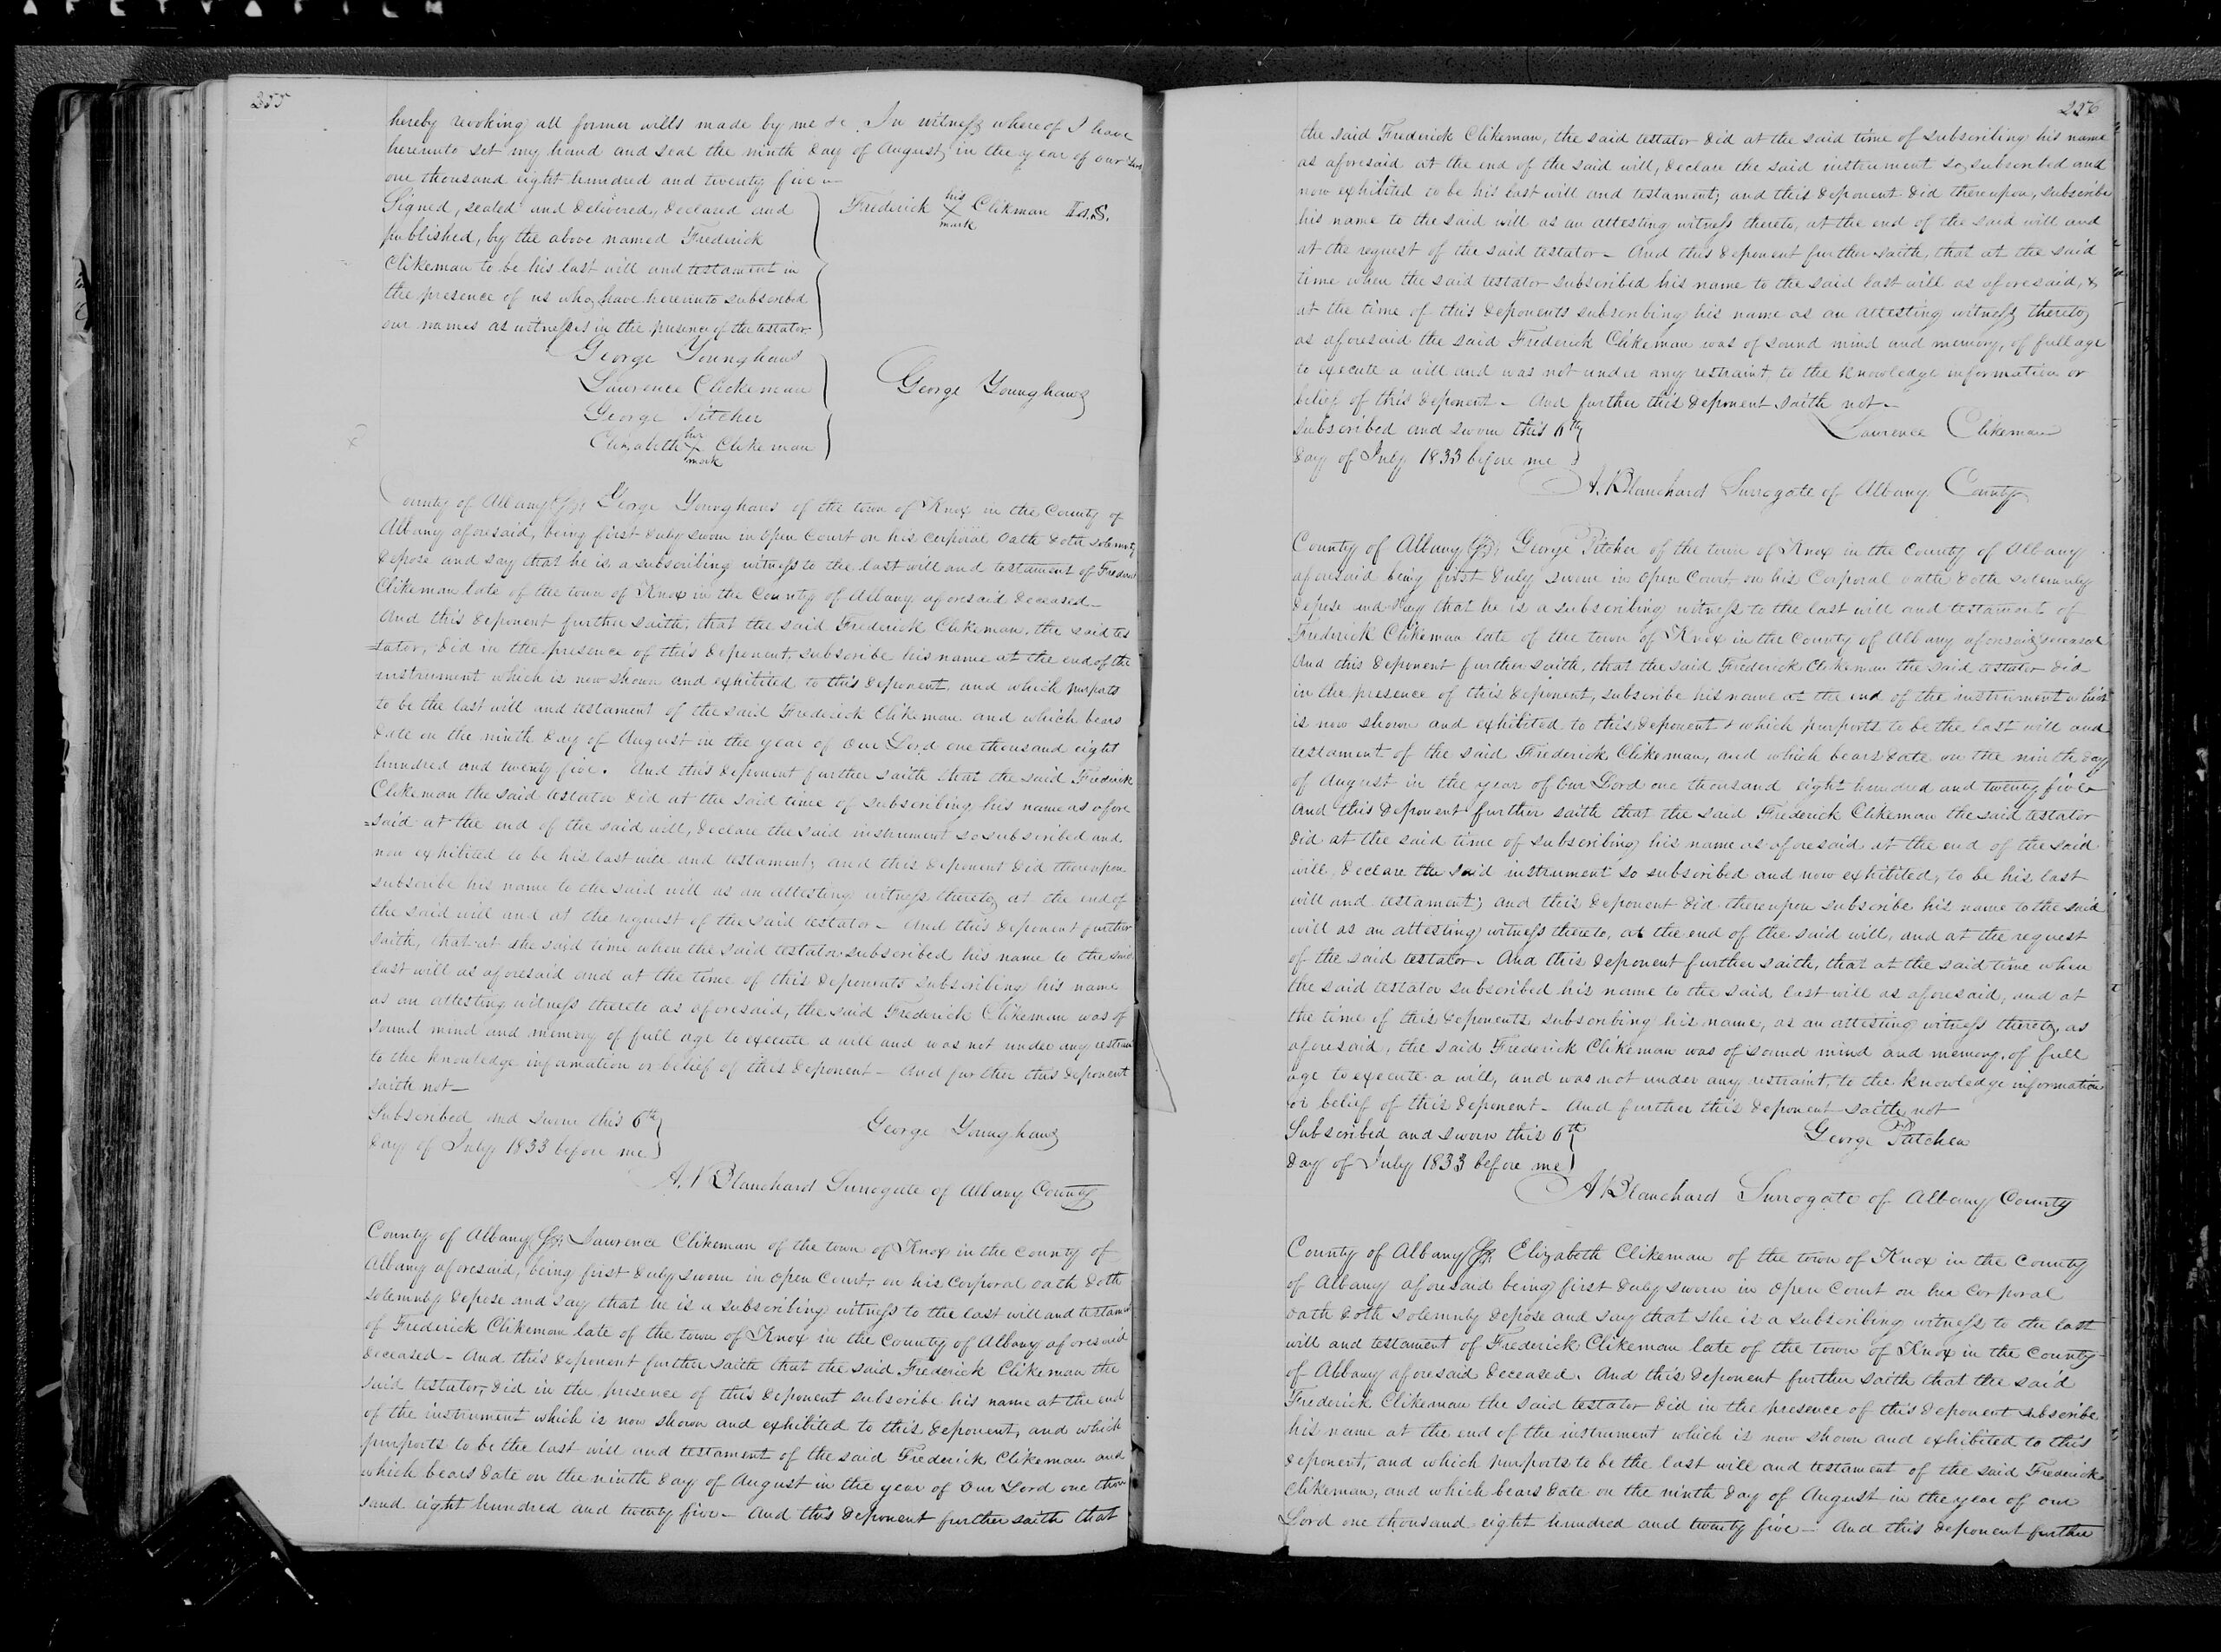 SAFETY FILM
255
hereby revoking all former wills made by me &c. In witness whereof I have
hereunto set my hand and seal the ninth day of August, in the year of our Lord
one thousand eight hundred and twenty five
Signed, sealed and delivered, declared and
published, by the above named Frederick
Clikeman to be his last will and testament in
the presence of us who have hereunto subscribed
our names as witnesses in the presence of the testator
Frederick his X mark Clikman L.S.
George Younghans
Lawrence Clickeman
George Pitcher
Elizabeth her X mark Clikeman
George Younghans
County of Albany Ss: George Younghans of the town of Knox in the County of
Albany aforesaid, being first duly sworn in open Court on his corporal oath doth solemnly
depose and say that he is a subscribing witness to the last will and testament of Frederick
Clikeman late of the town of Knox in the County of Albany aforesaid deceased_
And this deponent further saith, that the said Frederick Clikeman, the said tes
=tator, did in the presence of this deponent, subscribe his name at the end of the
instrument which is now shown and exhibited to this deponent, and which purports
to be the last will and testament of the said Frederick Clikeman and which bears
date on the ninth day of August in the year of Our Lord one thousand eight
hundred and twenty five. And this deponent further saith that the said Frederick
Clikeman the said testator did at the said time of subscribing his name as afore
=said at the end of the said will, declare the said instrument so subscribed and
now exhibited to be his last will and testament; and this deponent did thereupon
subscribe his name to the said will as an attesting witness thereto, at the end of
the said will and at the request of the said testator_ And this deponent further
saith, that at the said time when the said testator subscribed his name to the said
last will as aforesaid and at the time of this deponents subscribing his name
as an attesting witness thereto as aforesaid, the said Frederick Clikeman was of
sound mind and memory of full age to execute a will and was not under any restraint
to the knowledge information or belief of this deponent_ And further this deponent
saith not_
Subscribed and sworn this 6th
day of July 1833 before me
George Younghans
A. Blanchard Surrogate of Albany County
County of Albany Ss: Lawrence Clikeman of the town of Knox in the County of
Albany aforesaid, being first duly sworn in open Court, on his corporal oath doth
solemnly depose and say that he is a subscribing witness to the last will and testament
of Frederick Clikeman late of the town of Knox in the County of Albany aforesaid
deceased_ And this deponent further saith that the said Frederick Clikeman the
said testator, did in the presence of this deponent subscribe his name at the end
of the instrument which is now shown and exhibited to this deponent, and which
purports to be the last will and testament of the said Frederick Clikeman and
which bears date on the ninth day of August in the year of Our Lord one thou
sand eight hundred and twenty five_ And this deponent further saith that
256
the said Frederick Clikeman, the said testator did at the said time of subscribing his name
as aforesaid at the end of the said will, declare the said instrument so subscribed and
now exhibited to be his last will and testament; and this deponent did thereupon, subscribe
his name to the said will as an attesting witness thereto, at the end of the said will and
at the request of the said testator_ And this deponent further saith, that at the said
time when the said testator subscribed his name to the said last will as aforesaid, &
at the time of this deponents subscribing his name as an attesting witness thereto,
as aforesaid the said Frederick Clikeman was of sound mind and memory, of full age
to execute a will and was not under any restraint, to the knowledge information or
belief of this deponent_ And further this deponent saith not_
Subscribed and sworn this 6th
day of July 1833 before me
Lawrence Clikeman
A. Blanchard Surrogate of Albany County
County of Albany Ss: George Pitcher of the town of Knox in the County of Albany
aforesaid being first duly sworn in open Court on his Corporal oath doth solemnly
depose and say that he is a subscribing witness to the last will and testament of
Frederick Clikeman late of the town of Knox in the County of Albany aforesaid, deceased
And this deponent further saith, that the said Frederick Clikeman the said testator did
in the presence of this deponent, subscribe his name at the end of the instrument which
is now shown and exhibited to this deponent & which purports to be the last will and
testament of the said Frederick Clikeman, and which bears date on the ninth day
of August in the year of Our Lord one thousand eight hundred and twenty five
And this deponent further saith that the said Frederick Clikeman the said testator
did at the said time of subscribing his name as aforesaid at the end of the said
will, declare the said instrument so subscribed and now exhibited, to be his last
will and testament; and this deponent did thereupon subscribe his name to the said
will as an attesting witness thereto, at the end of the said will, and at the request
of the said testator. And this deponent further saith, that at the said time when
the said testator subscribed his name to the said last will as aforesaid, and at
the time of this deponents subscribing his name, as an attesting witness thereto, as
aforesaid, the said Frederick Clikeman was of sound mind and memory, of full
age to execute a will, and was not under any restraint, to the knowledge information
or belief of this deponent_ And further this deponent saith not
Subscribed and sworn this 6th
day of July 1833 before me
George Pitcher
A Blanchard Surrogate of Albany County
County of Albany Ss: Elizabeth Clikeman of the town of Knox in the County
of Albany aforesaid being first duly sworn in open Court on her Corporal
oath doth solemnly depose and say that she is a subscribing witness to the last
will and testament of Frederick Clikeman late of the town of Knox in the County
of Albany aforesaid deceased. And this deponent further saith that the said
Frederick Clikeman the said testator did in the presence of this deponent subscribe
his name at the end of the instrument which is now shown and exhibited to this
deponent, and which purports to be the last will and testament of the said Frederick
Clikeman, and which bears date on the ninth day of August in the year of our
Lord one thousand eight hundred and twenty five_ And this deponent further